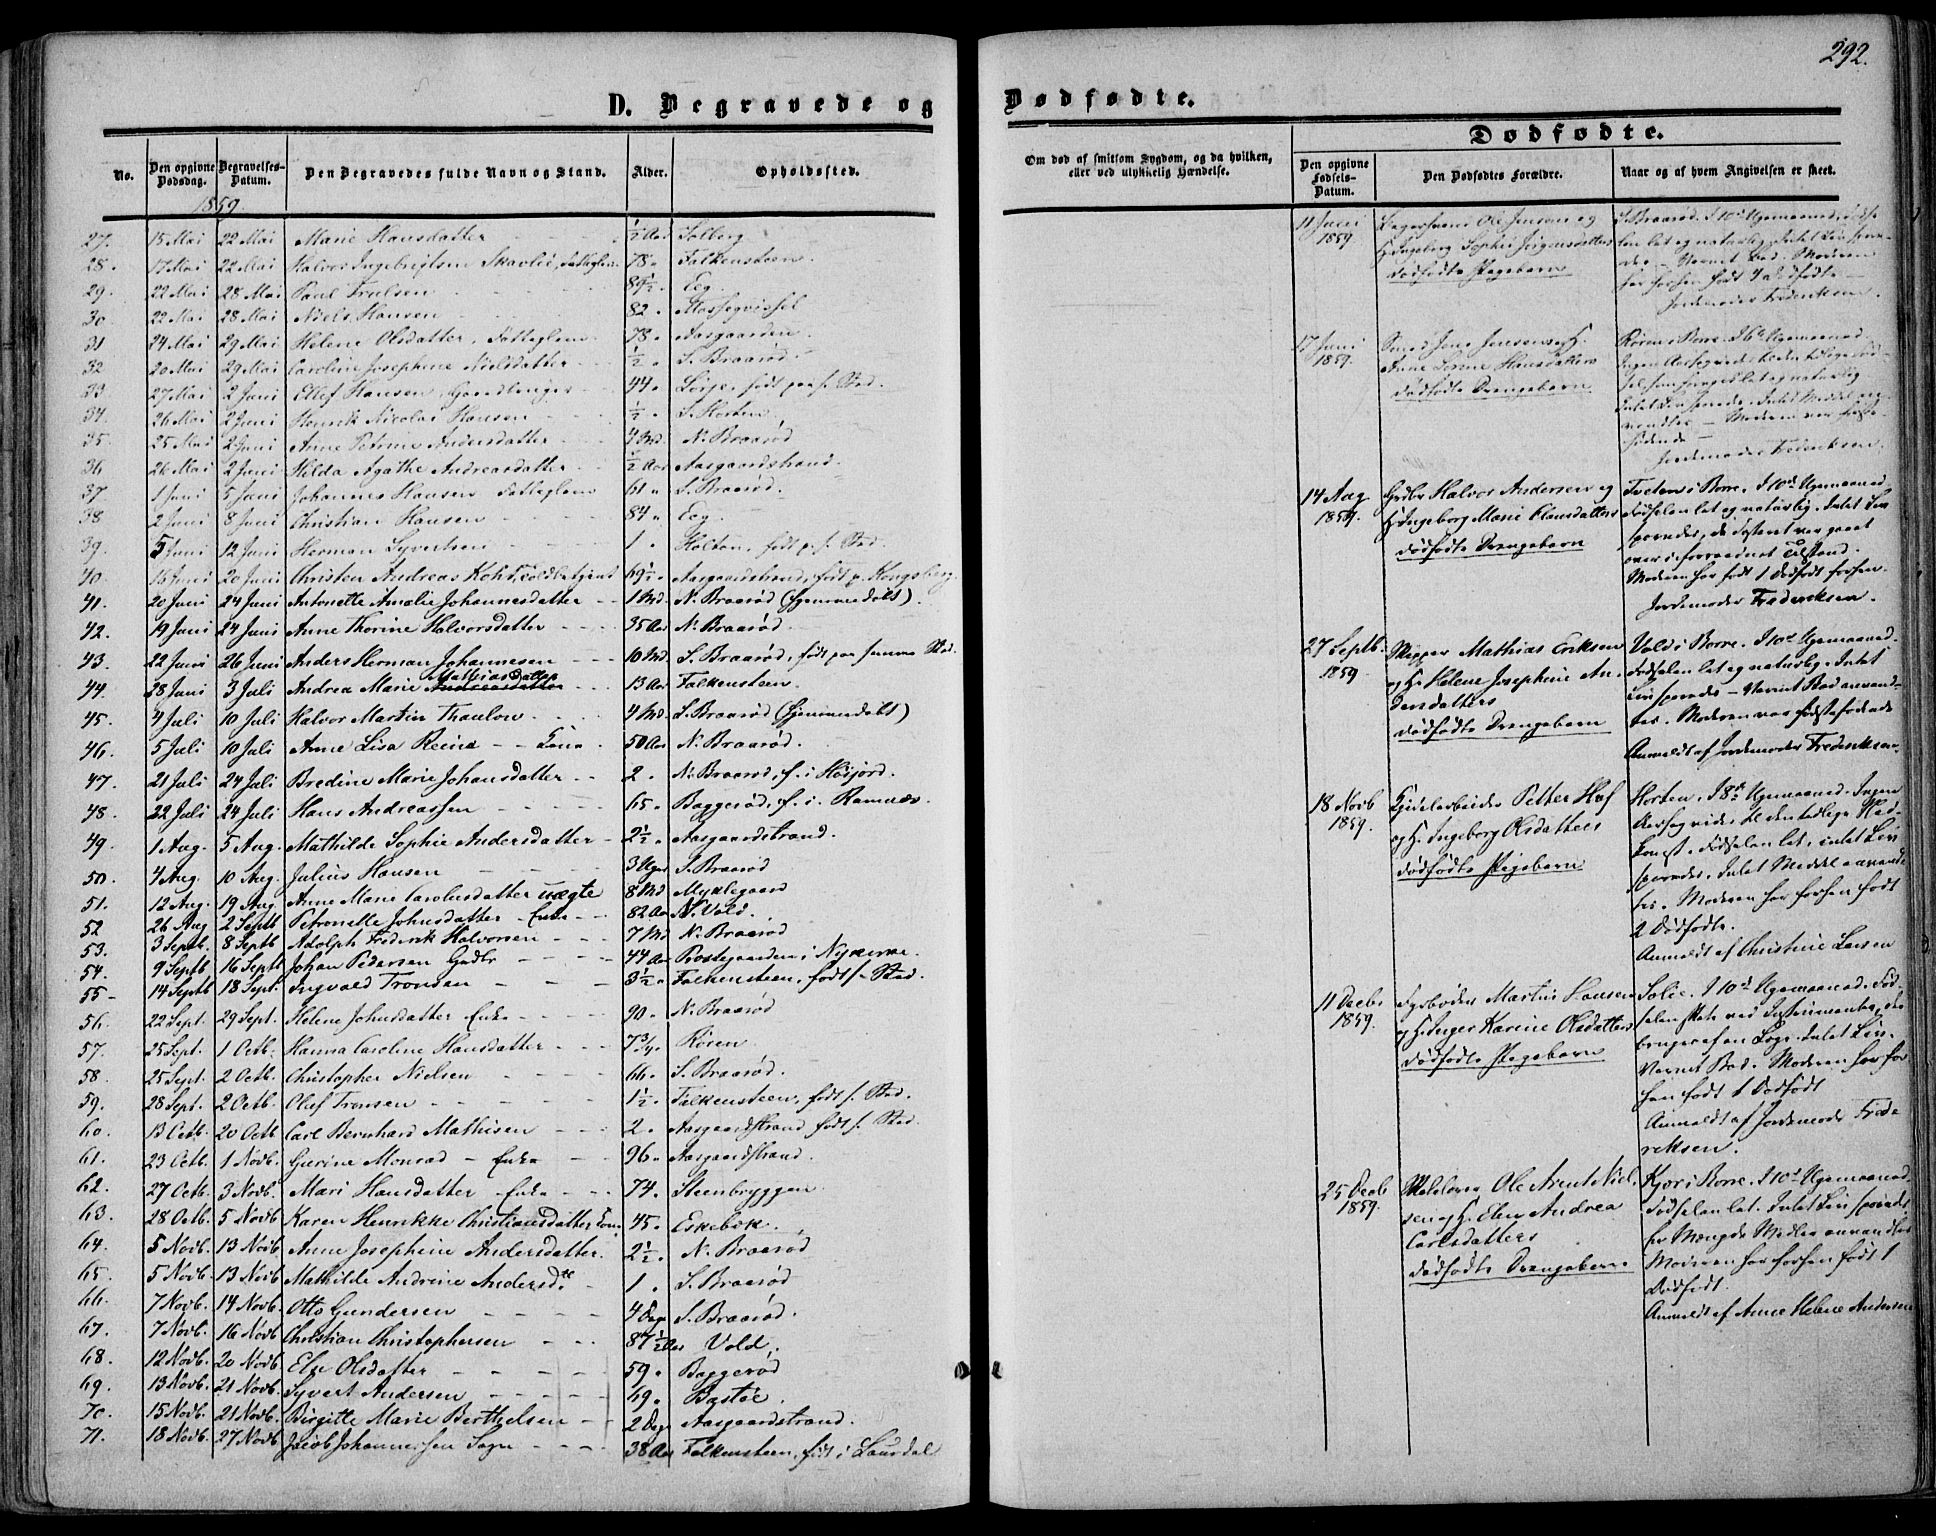 292.
D. Begravede og Dødfødte.
No.
Den opgivne Dødsdag.
Begravelses-Datum.
Den Begravedes fulde Navn og Stand.
Alder.
Opholdssted.
1859.
27. 15 Mai 22 Mai Marie Hansdatter ½ Aar Solberg
28. 17 Mai 22 Mai Halvor Ingebrigtsen Skavlie, Fattiglem 78 " Falkensteen
29. 22 Mai 28 Mai Paul Trulsen 89½ " Eeg
30. 22 Mai 28 Mai Niels Hansen 82 "
31 24 Mai 29 Mai Helene Olsdatter, Fattiglem 78 " Aasgaarden
32 20 Mai 29 Mai Caroline Josephine Nielsdatter ½ " S. Braarød
33 27 Mai 2 Juni Ellef Hansen, Gaardbruger 44 " født paa s. Sted.
34. 26 Mai 2 Juni Henrik Nicolai Hansen ½ " S. Horten
35. 25 Mai 2 Juni Anne Petrine Andersdatter 4 Md. N. Braarød
36 26 Mai 2 Juni Hilda Agathe Andreasdatter ½ Aar Aasgaardstrand.
37. 1 Juni 5 Juni Johannes Hansen Fattiglem 61 " S. Braarød.
38 2 Juni 8 Juni Christian Hansen 84 " Eeg.
39. 5 Juni 12 Juni Herman Syvertsen 1 " Holtan, født p. s. Sted.
40. 16 Juni 20 Juni Christen Andreas Kohl, Toldbetjent 69½ " Aasgaardstrand, født p. Kongsberg.
41. 20 Juni 24 Juni Antonette Amalie Johannesdatter 1 Md. N. Braarød (Hjemmedøbt).
42. 19 Juni 24 Juni Anne Thorine Halvorsdatter 35 Aar N. Braarød.
43. 22 Juni 26 Juni Anders Herman Johannesen 10 Md. S. Braarød, født paa samme Sted.
44. 28 Juni 3 Juli Andrea Marie Andreasdatter Mathiasdatter 13 Aar Falkensteen.
45. 4 Juli 10 Juli Halvor Martin Thaulow 4 Md. S. Braarød (Hjemmedøbt)
46. 5 Juli 10 Juli Anne Lisa Reine Kone 50 Aar N. Braarød.
47. 21 Juli 24 Juli Bredine Marie Johansdatter 2 " N. Braarød, f. i Høijord.
48. 22 Juli 24 Juli Hans Andreassen 65 " Baggerød, f. i Ramnæs.
49. 1 Aug. 5 Aug. Mathilde Sophie Andersdatter 2½ " Aasgaardstrand.
50. 4 Aug. 10 Aug. Julius Hansen 3 Uger S. Braarød
51. 12 Aug. 19 Aug. Anne Marie Carolusdatter uægte 8 Md Myklegaard
52 26 Aug 2 Septb Petronelle Johnsdatter Enke 82 Aar N. Vold.
53. 3 Septb. 8 Septb Adolph Frederik Halvorsen 7 Md N. Braarød
54. 9 Septb 16 Septb Johan Pedersen Gudbr 44 Aar Prestegaarden i Nykirke.
55 14 Septb 18 Sept. Ingvald Tronsen 3½ " Falkensteen, født s. Sted.
56. 22 Sept. 29 Sept. Helene Johnsdatter Enke 90 " N. Braarød
57. 25 Sept. 1 Octb. Hanna Caroline Hansdatter 7¾ " Røren.
58. 25 Sept. 2 Octb. Christopher Nielsen 66 " S. Braarød.
59. 28 Sept. 2 Octb. Oluf Tronsen 1½ " Falkensteen, født s. Sted.
60. 13 Octb. 20 Octb Carl Bernhard Mathisen 2 " Aasgaardstrand født s. Sted.
61. 23 Octb. 1 Novb. Gurine Monrad Enke 96 " Aasgaardstrand.
62. 27 Octb. 3 Novb. Mari Hansdatter Enke 74. Steenbryggen.
63. 28 Octb. 5 Novb. Karen Henrikke Christiansdatter Kone 45. Eskebæk.
64. 5 Novb. 13 Novb. Anne Josephine Andersdatter. 2½ " N. Braarød
65. 5 Novb. 13 Novb Mathilde Andrine Andersdtr 1 " S. Braarød
66. 7 Novb. 14 Novb. Otto Gundersen 4 Dage S. Braarød.
67. 7 Novb. 16 Novb. Christian Christophersen 87½ Aar Vold.
68. 12 Novb. 20 Novb. Else Olsdatter 59 " Baggerød
69. 13 Novb. 21 Novb. Syvert Andersen 69. Bastøe.
70. 15 Novb. 21 Novb. Birgitte Marie Berthelsen 2 Dage Aasgaardstrand.
71. 18 Novb. 27 Novb. Jacob Johannessen 38 Aar Falkensteen, født i Laurdal
Om død af smitsom Sygdom, og da hvilken,
eller ved ulykkelig Hændelse.
Dødfødte.
Den opgivne Fødsels-Datum.
Den Dødfødtes Forældre.
Naar og af hvem Angivelsen er skeet.
11 Juni 1859
Ole Jensen og
H. Ingeborg Sophie Jørgensdatters
dødfødte Pigebarn
S. Braarød. I 10de Ugemaaned. Fødselen let og naturlig. Intet Liv sporedes
Varmt Bad. Moderen
har forhen født
Jordemoder Frederiksen.
17 Juni 1859.
Smed Jens Jensen og H.
Anne Lorine Hansdatters
dødfødte Drengebarn
Røren i Borre. I 6te Ugemaaned.
Fødsel
let og naturlig
Intet Liv sporedes. Intet Middel anvendtes
Moderen var førstefødende
Jordemoder Frederiksen.
14 Aug 1859.
Gdbr Halvor Andersen og
H. Ingeborg Marie Clausdatters
dødfødte Drengebarn
Tveten i Borre. I 10de Ugemaaned.
Fødselen let og naturlig. Intet Liv
sporedes, da Fosteret var gaaet
over i forraadnet Tilstand.
Moderen har født 1 Dødfødt forhen.
Jordemoder Frederiksen.
27 Septb. 1859
Skipper Mathias Eriksen
og H. Helene Josephine An-
dersdatters
dødfødte Drengebarn
Vold i Borre. I 10de Ugemaaned.
Fødselen let og naturlig. Intet
Liv sporedes. Varmt Bad anvend-
tes. Moderen var førstefødende
Anmeldt af Jordemoder Frederiksen.
18 Novb 1859.
Petter Hof
og H. Ingeborg Olsdatters
dødfødte Pigebarn
Horten. I 8de Ugemaaned. Ingen
Aarsag vides til den tidlige Ned-
komst. Fødselen let, intet Liv
sporedes. Intet Middel anvend-
tes. Moderen har forhen født
2 Dødfødte.
Anmeldt af Christine Larsen
11 Decbr 1859.
Martin Hansen
og H. Inger Karine Olsdatters
dødfødte Pigebarn
Solie. I 10de Ugemaaned. Fød-
selen skete ved Instrumenter,
brugt af en Læge. Intet Liv.
Varmt Bad. Moderen har for-
hen født 1 Dødfødt
Anmeldt af Jordemoder Frede-
riksen.
25 Decb 1859.
Ole Arent Niel-
sen og H. Elen Andrea
Carlsdatters
dødfødte Drengebarn
Kjær i Borre. I 10de Ugemaaned.
Fødselen let. Intet Liv sporedes
Midler anvendtes
Moderen har forhen født 1
Dødfødt.
Anmeldt af Anne Helene Andersen